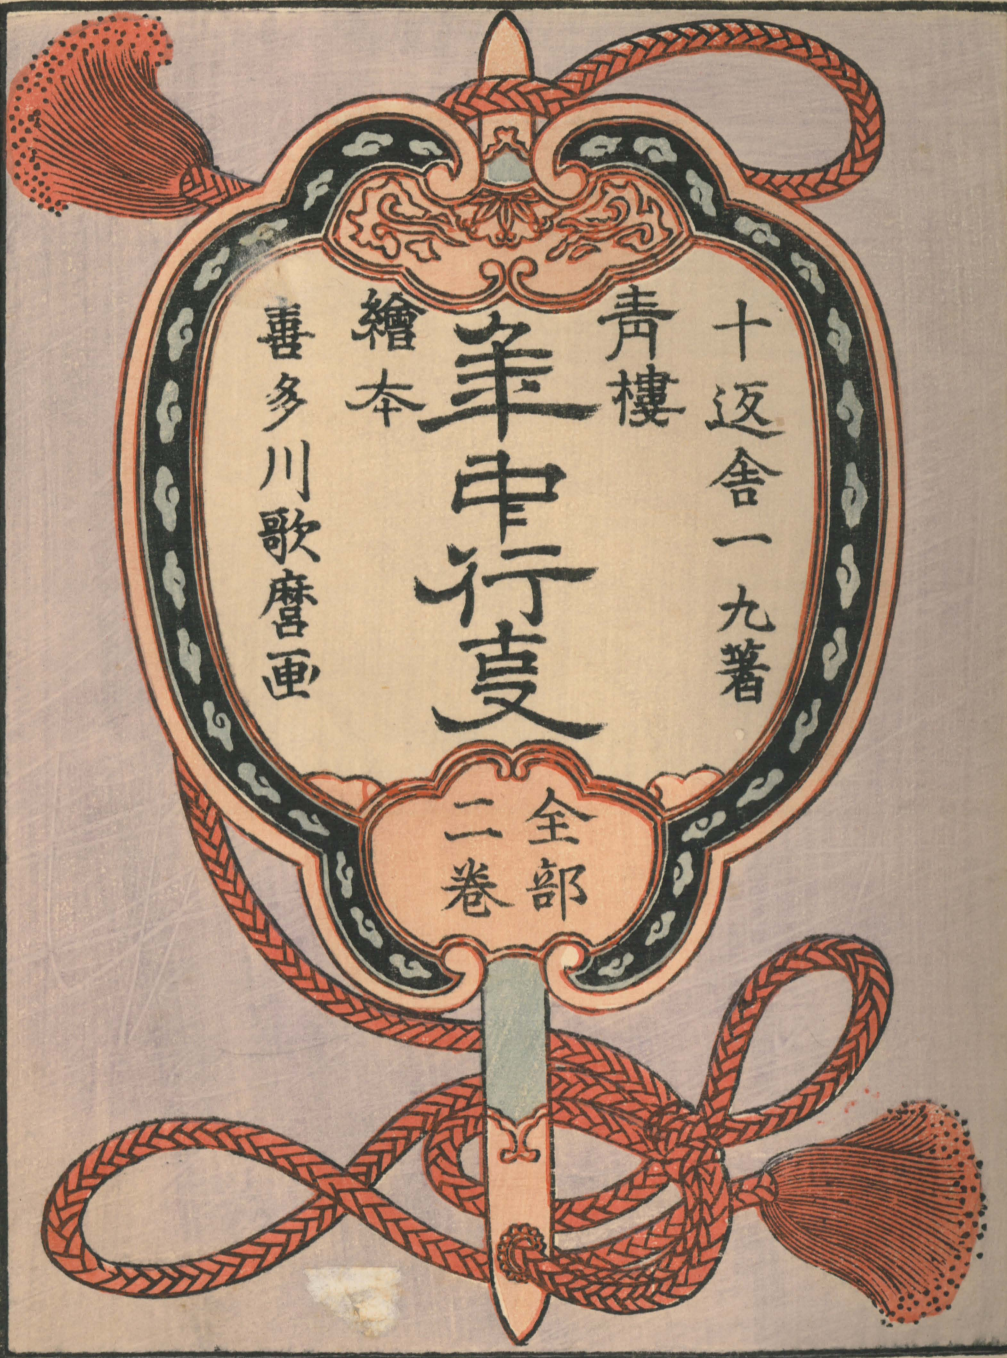 十返舎一九著
青樓
繪本
年中行事
喜多川歌麿画
全部
二巻